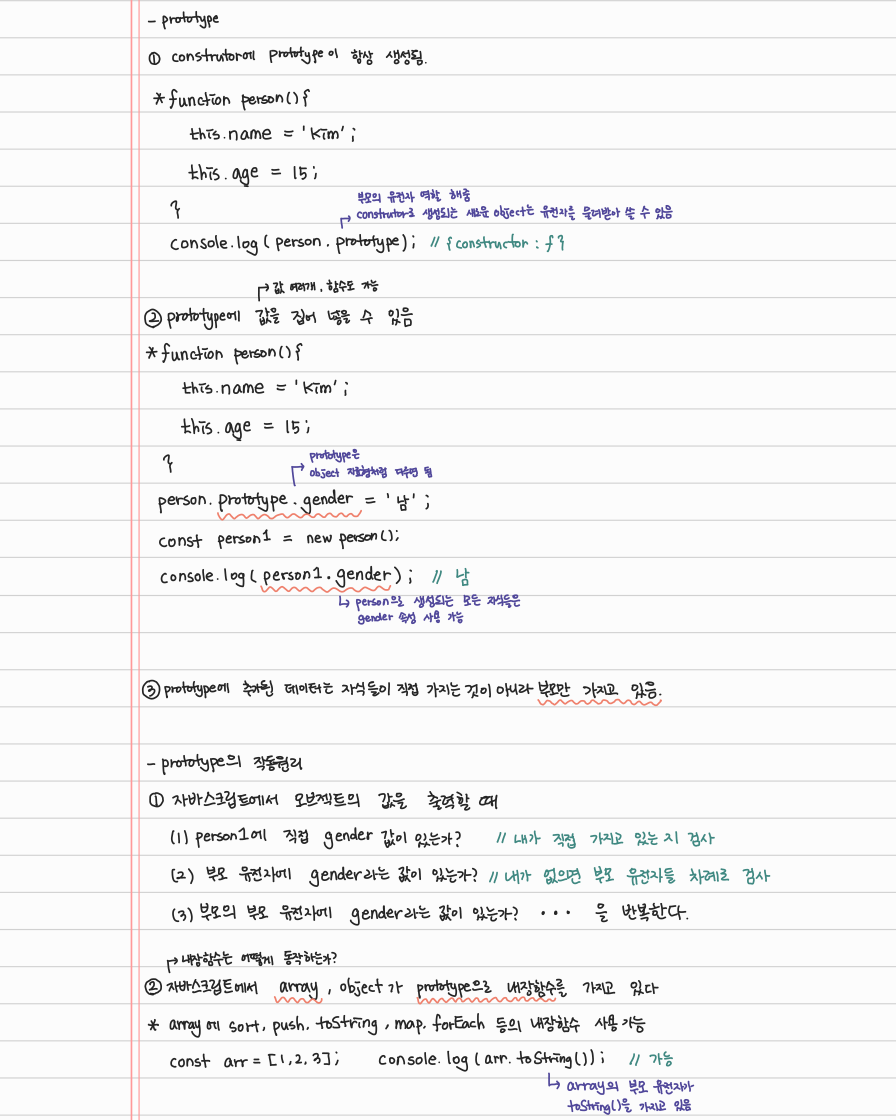 - prototype
① construtor에 prototype이 항상 생성됨.
* function person(){
this.name = 'Kim';
this.age = 15;
}
부모의 유전자 역할 해줌
construtor로 생성되는 새로운 object는 유전자를 물려받아 쓸 수 있음
console.log(person.prototype); // {constructor : f}
값 여러개, 함수도 가능
② prototype에 값을 집어 넣을 수 있음
* function person(){
this.name = 'Kim';
this.age = 15;
}
prototype은
object 자료형처럼 다루면 됨
person.prototype.gender = '남';
const person1 = new person();
console.log(person1.gender); // 남
person으로 생성되는 모든 자식들은
gender 속성 사용 가능
③ prototype에 추가된 데이터는 자식들이 직접 가지는 것이 아니라 부모만 가지고 있음.
- prototype의 작동원리
① 자바스크립트에서 오브젝트의 값을 출력할 때
(1) person1에 직접 gender 값이 있는가? // 내가 직접 가지고 있는 지 검사
(2) 부모 유전자에 gender라는 값이 있는가? // 내가 없으면 부모 유전자들 차례로 검사
(3) 부모의 부모 유전자에 gender라는 값이 있는가? ··· 을 반복한다.
내장함수는 어떻게 동작하는가?
② 자바스크립트에서 array, object가 prototype으로 내장함수를 가지고 있다
* array에 sort, push, toString, map, forEach 등의 내장함수 사용가능
const arr = [1,2,3]; console.log(arr.toString()); // 가능
array의 부모 유전자가
toString()을 가지고 있음